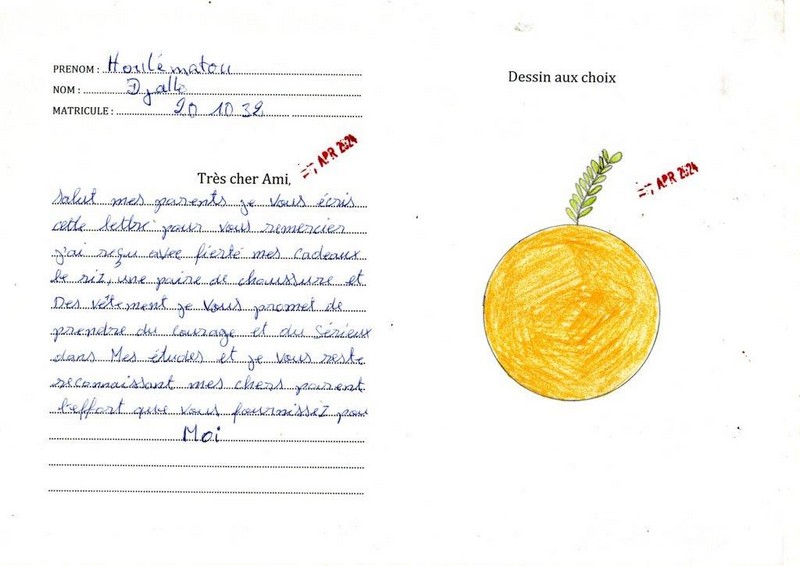 PRENOM : Houlématou
NOM : Djallo
MATRICULE : 20 10 32
Très cher Ami,
APR 2024
salut mes parents je vous écris
cette lettre pour vous remercier
j'ai reçu avec fierté mes cadeaux
le riz, une paire de chaussure et
Des vêtement je vous promet de
prendre du courage et du sérieux
dans Mes études et je vous reste
reconnaissant mes chers parent
l'effort que vous fournissez pour
Moi
Dessin aux choix
APR 2024